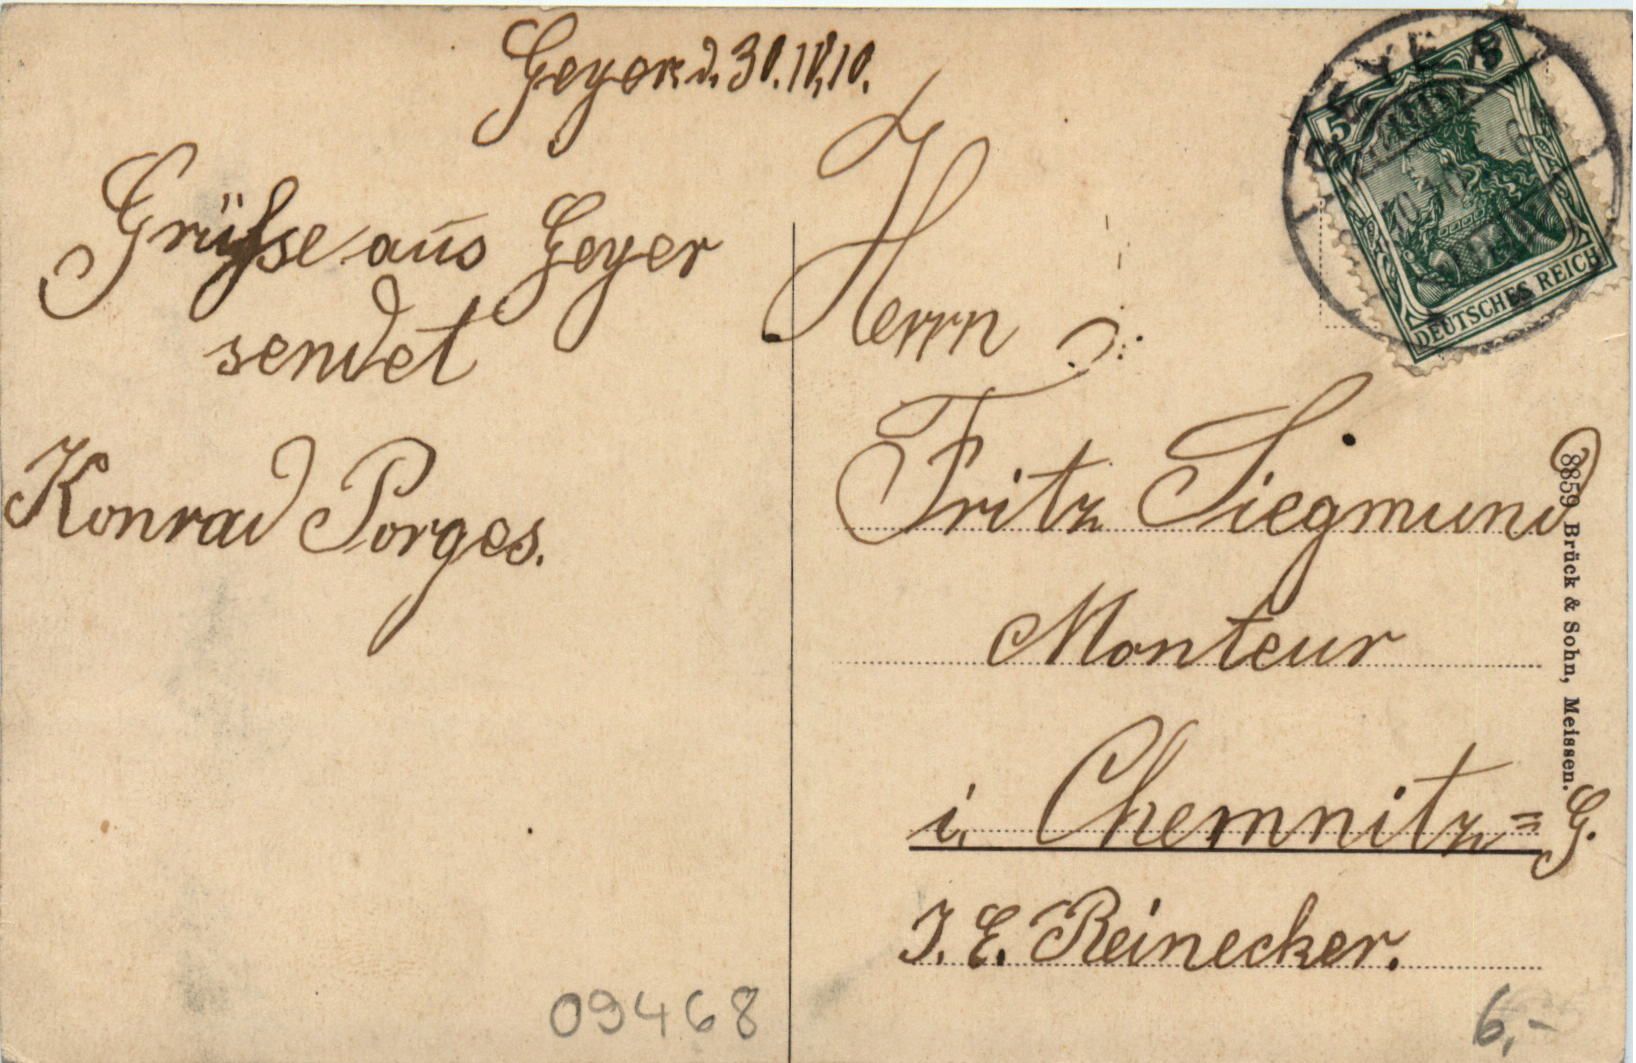 Geyer d. 30.IV.10.
Grüsse aus Geyer
sendet
Konrad Porges.
Herrn
Fritz Siegmund
Monteur
i. Chemnitz=G.
J. E. Reinecker.
GEYER
5
DEUTSCHES REICH
8859 Brück & Sohn, Meissen.
09468
6,-